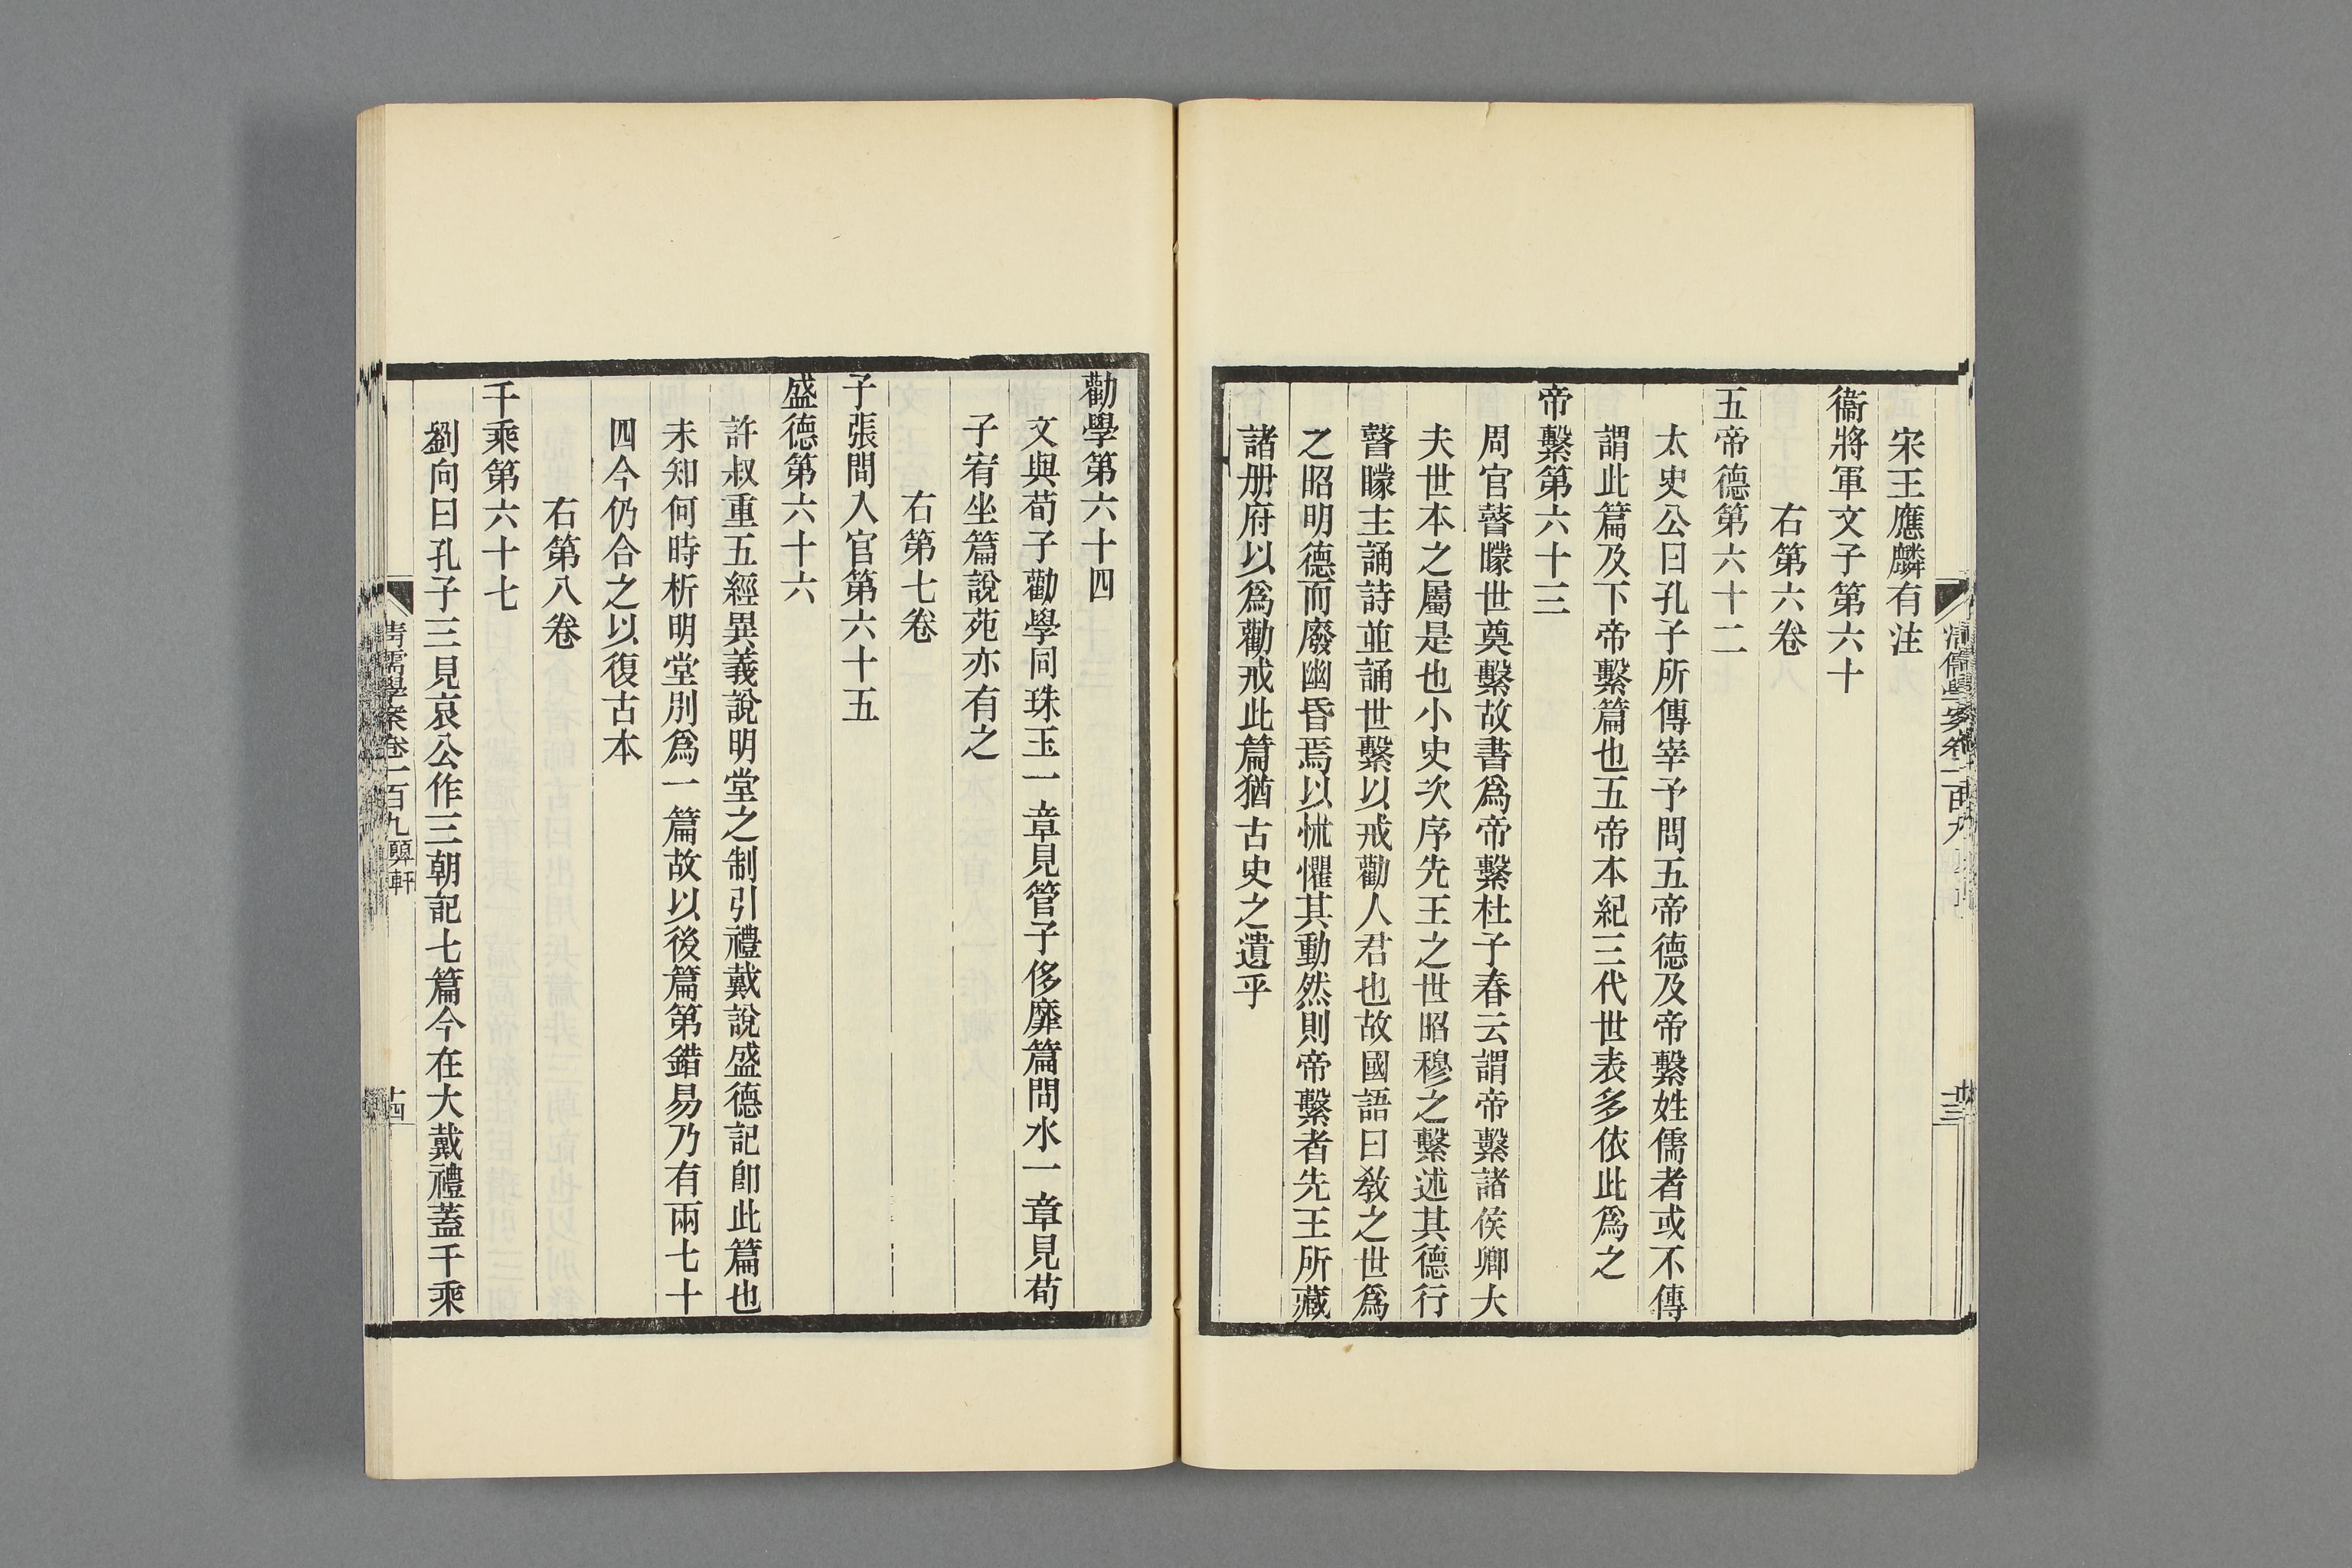 宋王應麟有注
衞將軍文子第六十
右第六卷
五帝德第六十二
太史公曰孔子所傳宰予問五帝德及帝繫姓儒者或不傳
謂此篇及下帝繫篇也五帝本紀三代世表多依此爲之
帝繫第六十三
周官瞽矇世奠繫故書爲帝繫杜子春云謂帝繫諸侯卿大
夫世本之屬是也小史次序先王之世昭穆之繫述其德行
瞽矇主誦詩並誦世繫以戒勸人君也故國語曰敎之世爲
之昭明德而廢幽昏焉以怵懼其動然則帝繫者先王所藏
諸册府以爲勸戒此篇猶古史之遺乎
勸學第六十四
文與荀子勸學同珠玉一章見管子侈靡篇問水一章見荀
子宥坐篇說苑亦有之
右第七卷
子張問入官第六十五
盛德第六十六
許叔重五經異義說明堂之制引禮戴說盛德記卽此篇也
未知何時析明堂別爲一篇故以後篇第錯易乃有兩七十
四今仍合之以復古本
右第八卷
千乘第六十七
劉向曰孔子三見哀公作三朝記七篇今在大戴禮蓋千乘
清儒學案卷一百九 顨軒